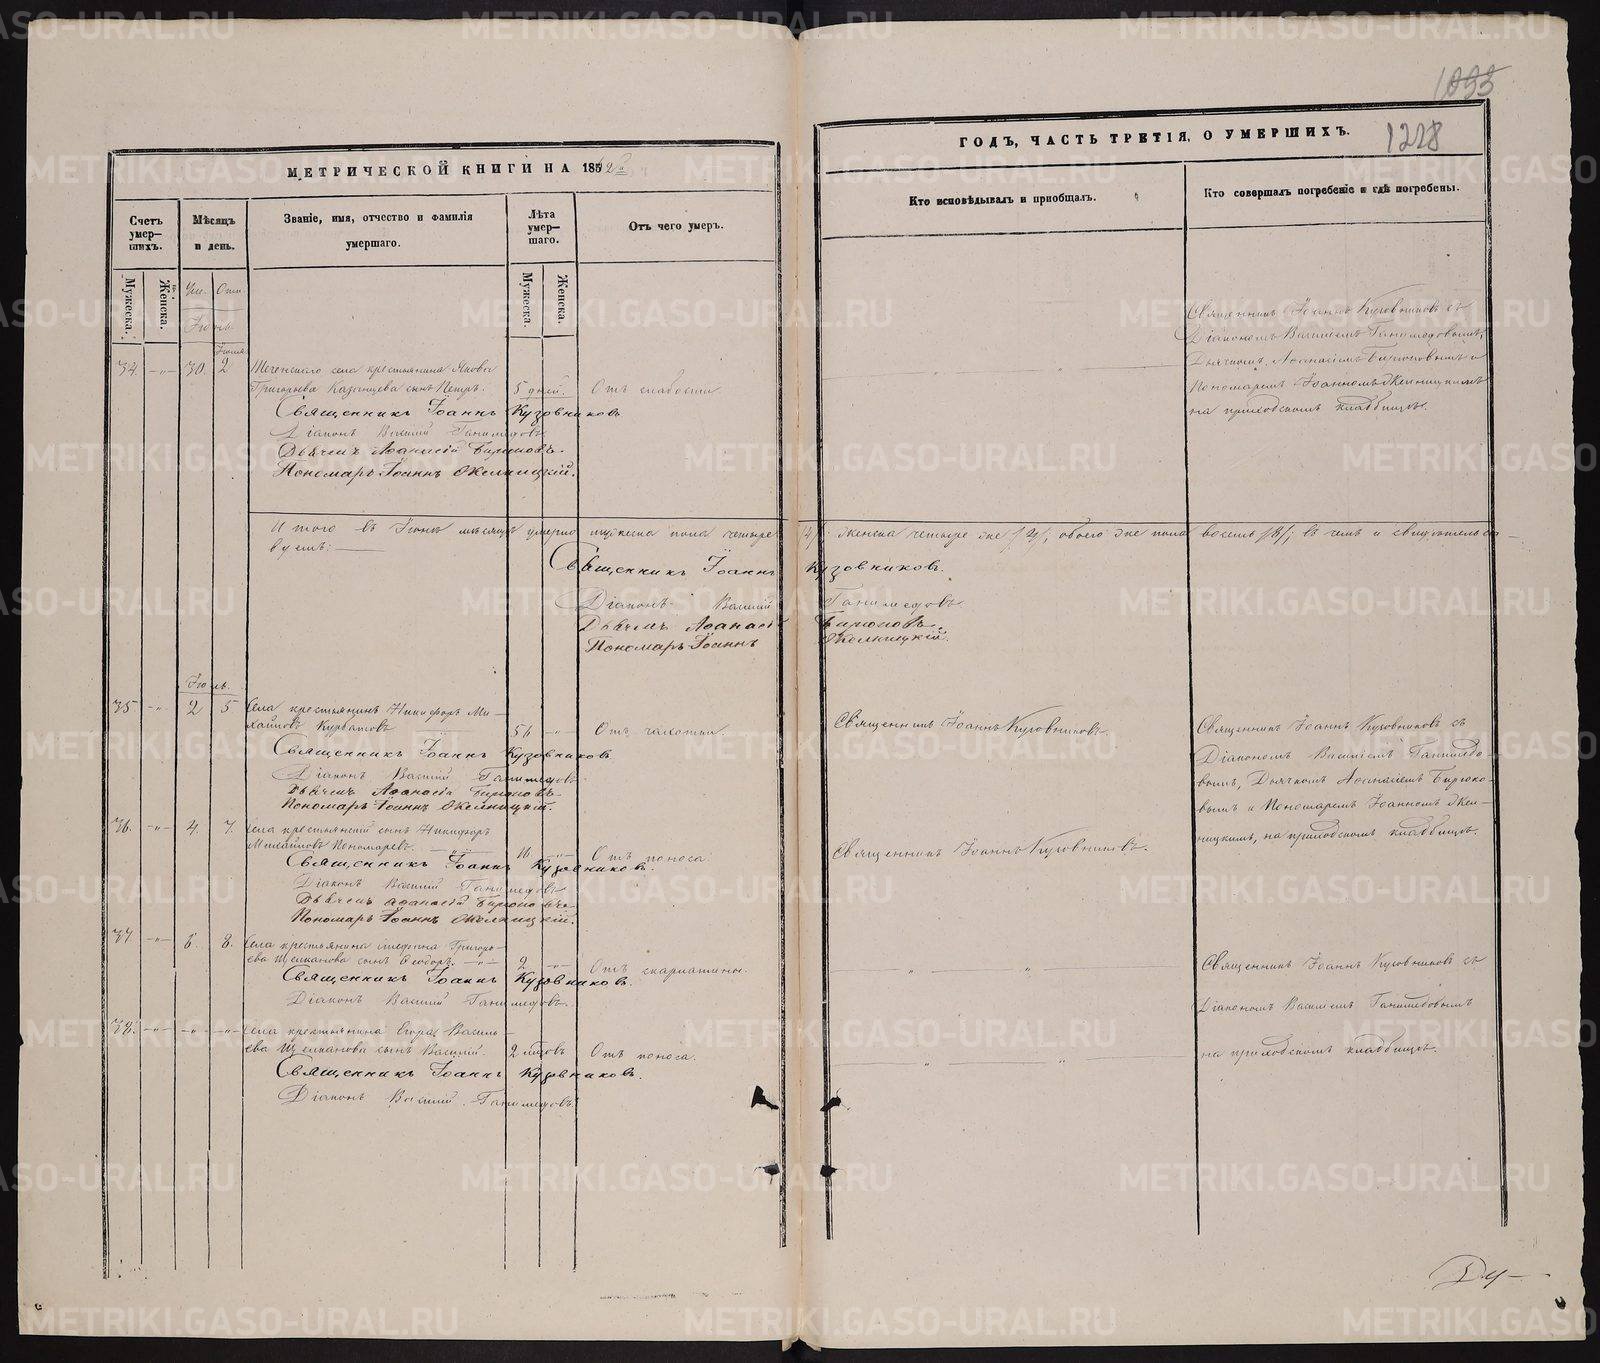 МЕТРИЧЕСКОЙ КНИГИ НА 185
Счетъ умер-шихъ.
Мѣсяцъ и день.
Званіе, имя, отчество и фамилія умершаго.
Лѣта умер-шаго.
Отъ чего умеръ.
Мужеска.
Женска.
Мужеска.
Женска.
Іюнь
Іюля
34. 30. 2 села крестьянина Якова
Григорьева Казанцева сынъ Петръ. 5 дней. Отъ слабости
Священникъ Іоаннъ Кузовниковъ
Діаконъ Василій Ганимедовъ
Дьячекъ Аѳанасій Бирюковъ.
Пономарь Іоаннъ
Итого въ Іюнѣ мѣсяцѣ умерло мужеска пола четыре
Священникъ Іоаннъ
Діаконъ Василій
Дьячекъ Аѳанасій
Пономарь Іоаннъ
Іюль.
35. 2 5 Села крестьянинъ Никифоръ Ми-
хайловъ Курбатовъ 56 Отъ чахотки.
Священникъ Іоаннъ Кузовниковъ
Діаконъ Василій Ганимедовъ
Дьячекъ Аѳанасій Бирюковъ
Пономарь Іоаннъ
36. 4. 7. Села крестьянскій сынъ Никифоръ
Михайловъ Пономаревъ. 16 Отъ поноса.
Священникъ Іоаннъ Кузовниковъ.
Діаконъ Василій Ганимедовъ
Дьячекъ Аѳанасій Бирюковъ
Пономарь Іоаннъ
37. 6. 8. Села крестьянина Григорь-
ева Щелканова сынъ Ѳеодоръ. 2 Отъ скарлатины.
Священникъ Іоаннъ Кузовниковъ.
Діаконъ Василій Ганимедовъ.
38. Села крестьянина Егора Василь-
ева Щелканова сынъ Василій. 2 Отъ поноса.
Священникъ Іоаннъ Кузовниковъ.
Діаконъ Василій Ганимедовъ.
1093
1228
ГОДЪ, ЧАСТЬ ТРЕТІЯ, О УМЕРШИХЪ.
Кто исповѣдывалъ и пріобщалъ.
Кто совершалъ погребеніе и гдѣ погребены.
Священникъ Іоаннъ Кузовниковъ съ
Діакономъ Василіемъ Ганимедовымъ,
Дьячкомъ Аѳанасіемъ Бирюковымъ и
Пономаремъ Іоанномъ
на приходскомъ кладбищѣ.
женска четыре же /4/, обоего же пола восемь /8/; въ чемъ и свидѣтельст-
вуемъ:
Кузовниковъ.
Ганимедовъ.
Бирюковъ.
Священникъ Іоаннъ Кузовниковъ.
Священникъ Іоаннъ Кузовниковъ съ
Діакономъ Василіемъ Ганимедо-
вымъ, Дьячкомъ Аѳанасіемъ Бирюко-
вымъ и Пономаремъ Іоанномъ
на приходскомъ кладбищѣ.
Священникъ Іоаннъ Кузовниковъ.
Священникъ Іоаннъ Кузовниковъ съ
Діакономъ Василіемъ Ганимедовымъ
на приходскомъ кладбищѣ.
METRIKI.GASO-URAL.RU